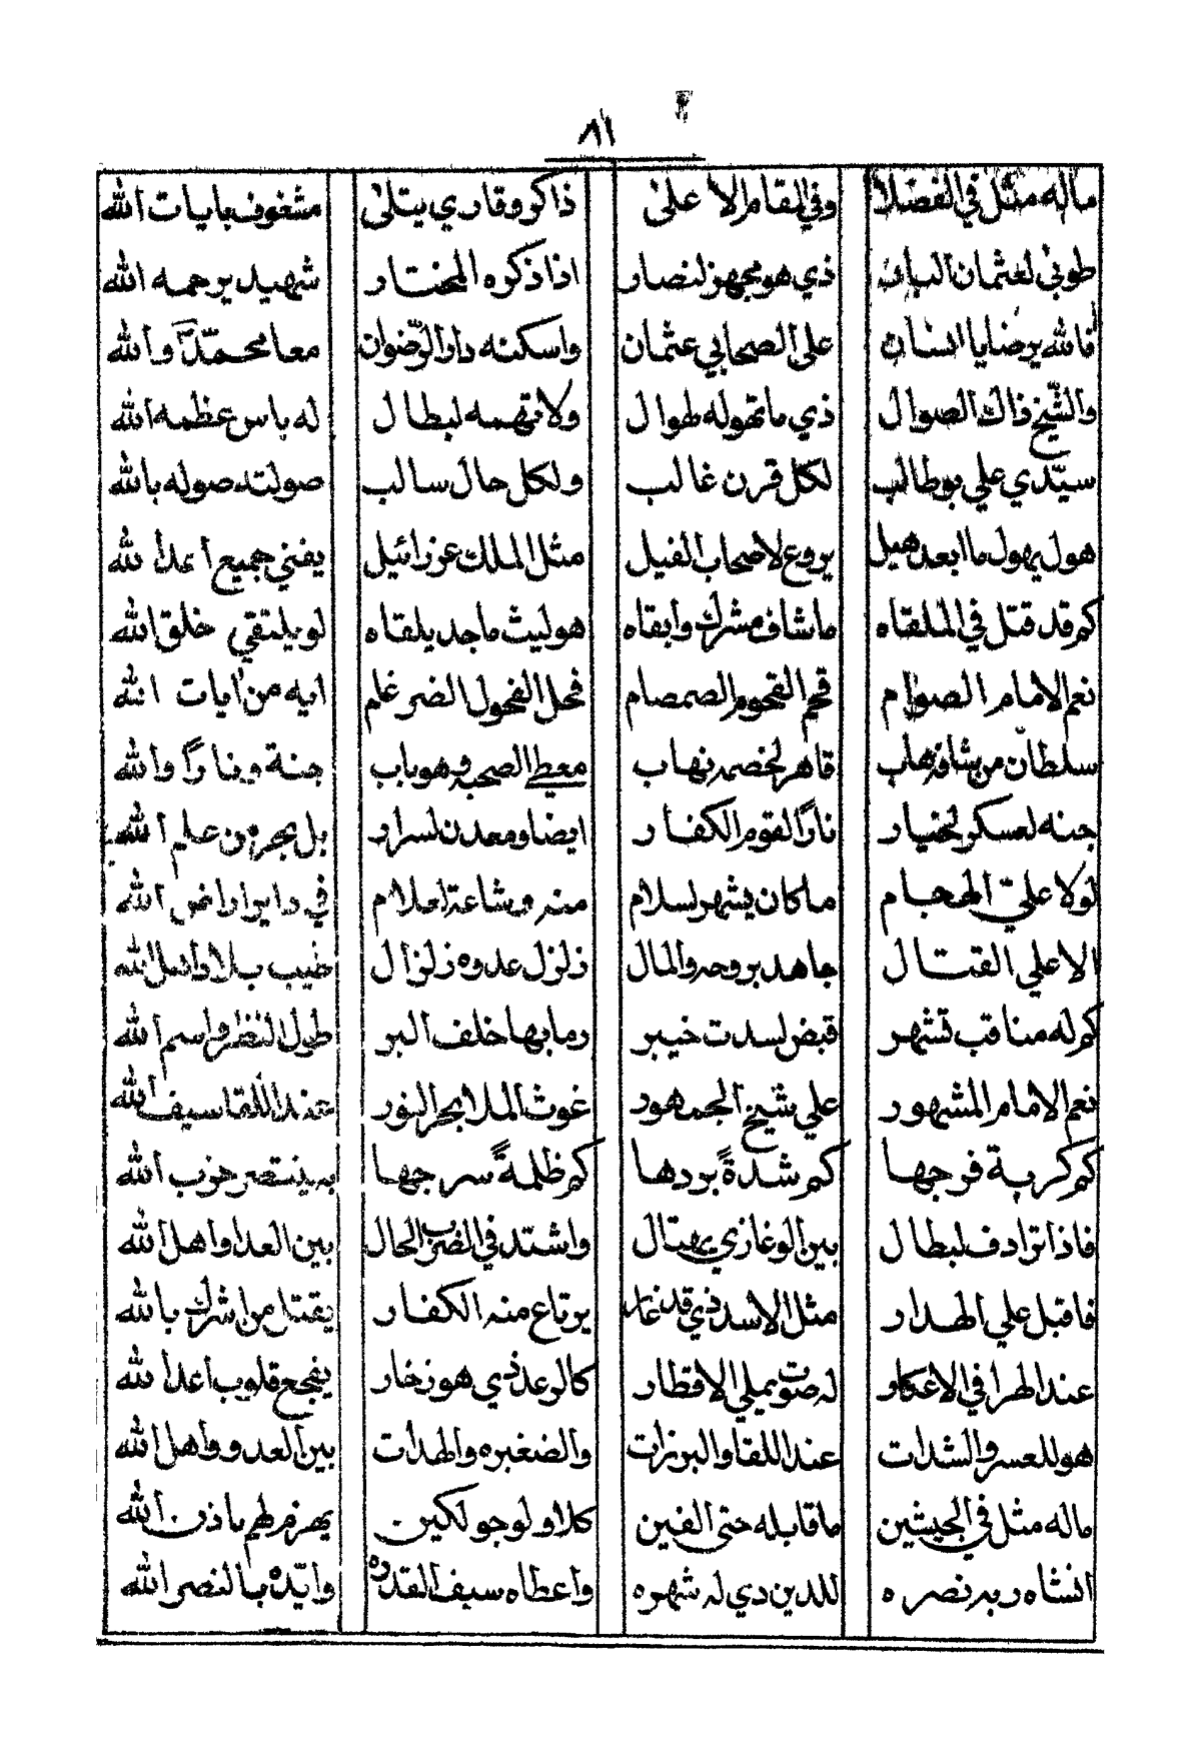 ٨١
ماله مثل في الفضلا وفي المقام الاعلى ذاكر وقاري يتلى مشغوف بايات الله
طوبى لعثمان ذي هو مجهز لنصار اذا ذكره المختار شهيد يرحمه الله
فالله يرضا يا انسان على الصحابي عثمان واسكنه دار الرّضوان معا محمّدًا والله
والشّيخ ذاك الصوال ذي ما تهوله طوال ولا تهمه لبطال له باس عظمه الله
سيّدي علي بوطالب لكل قرن غالب ولكل حال سالب صولته صوله بالله
هول يهول ما ابعد هيل يروع لاصحاب الفيل مثل الملك عزرائيل يفني جميع أعدا الله
كم قد قتل في الملقاه ما شاف مشرك وابقاه هو ليث ماجد يلقاه لو يلتقي خلق الله
نعم الامام الصوام قحم القحوم الصمصام فحل الفحول الضرغلم ايه من ايات الله
سلطان من شافه هاب قاهر لخصمه نهاب معطي الصحبه وهوباب جنة ونارًا والله
جنه لعسكر لخيار نارًا لقوم الكفار ايضا ومعدن لسرار بل بحره من علم الله
لولا عليّ الهجام ما كان يشهر لسلام منه وشاعة اعلام في داير ارض الله
الا علي القتال جاهد بروحه والمال زلزل عدوه زلزال خيب بلا واهل الله
كم له مناقب تشهر قبض لسدت خيبر رما بها خلف البر طول النظر واسم الله
نعم الامام المشهور علي شيخ الجمهور غوث الملا بحر النور عند اللقا سيف الله
كم كربة فرجها كم شدةً بردها كم ظلمةً سرجها به ينتصر حزب الله
فاذا ترادف لبطال بين الوغا زي يهتال واشتد في الضرب الحال بين العدا واهل الله
فاقبل علي الهدار مثل الاسد ذي قد غار يرتاع منه الكفار يقتل من اشرك بالله
عند الهرا في الاعكار له صوت يملي الاقطار كالرعد ذي هو زخار يفجع قلوب اعدا الله
هو للعسر والشدات عند اللقا والبرزات والضغبره والهدات بين العدو واهل الله
ما له مثل في الجيشين ما قابله حتى الفين كلا ولو جو لكين يهزم لهم باذن الله
انشاه ربه نصره للدين دي له شهره واعطاه سيف القدره وايّده بالنصر الله